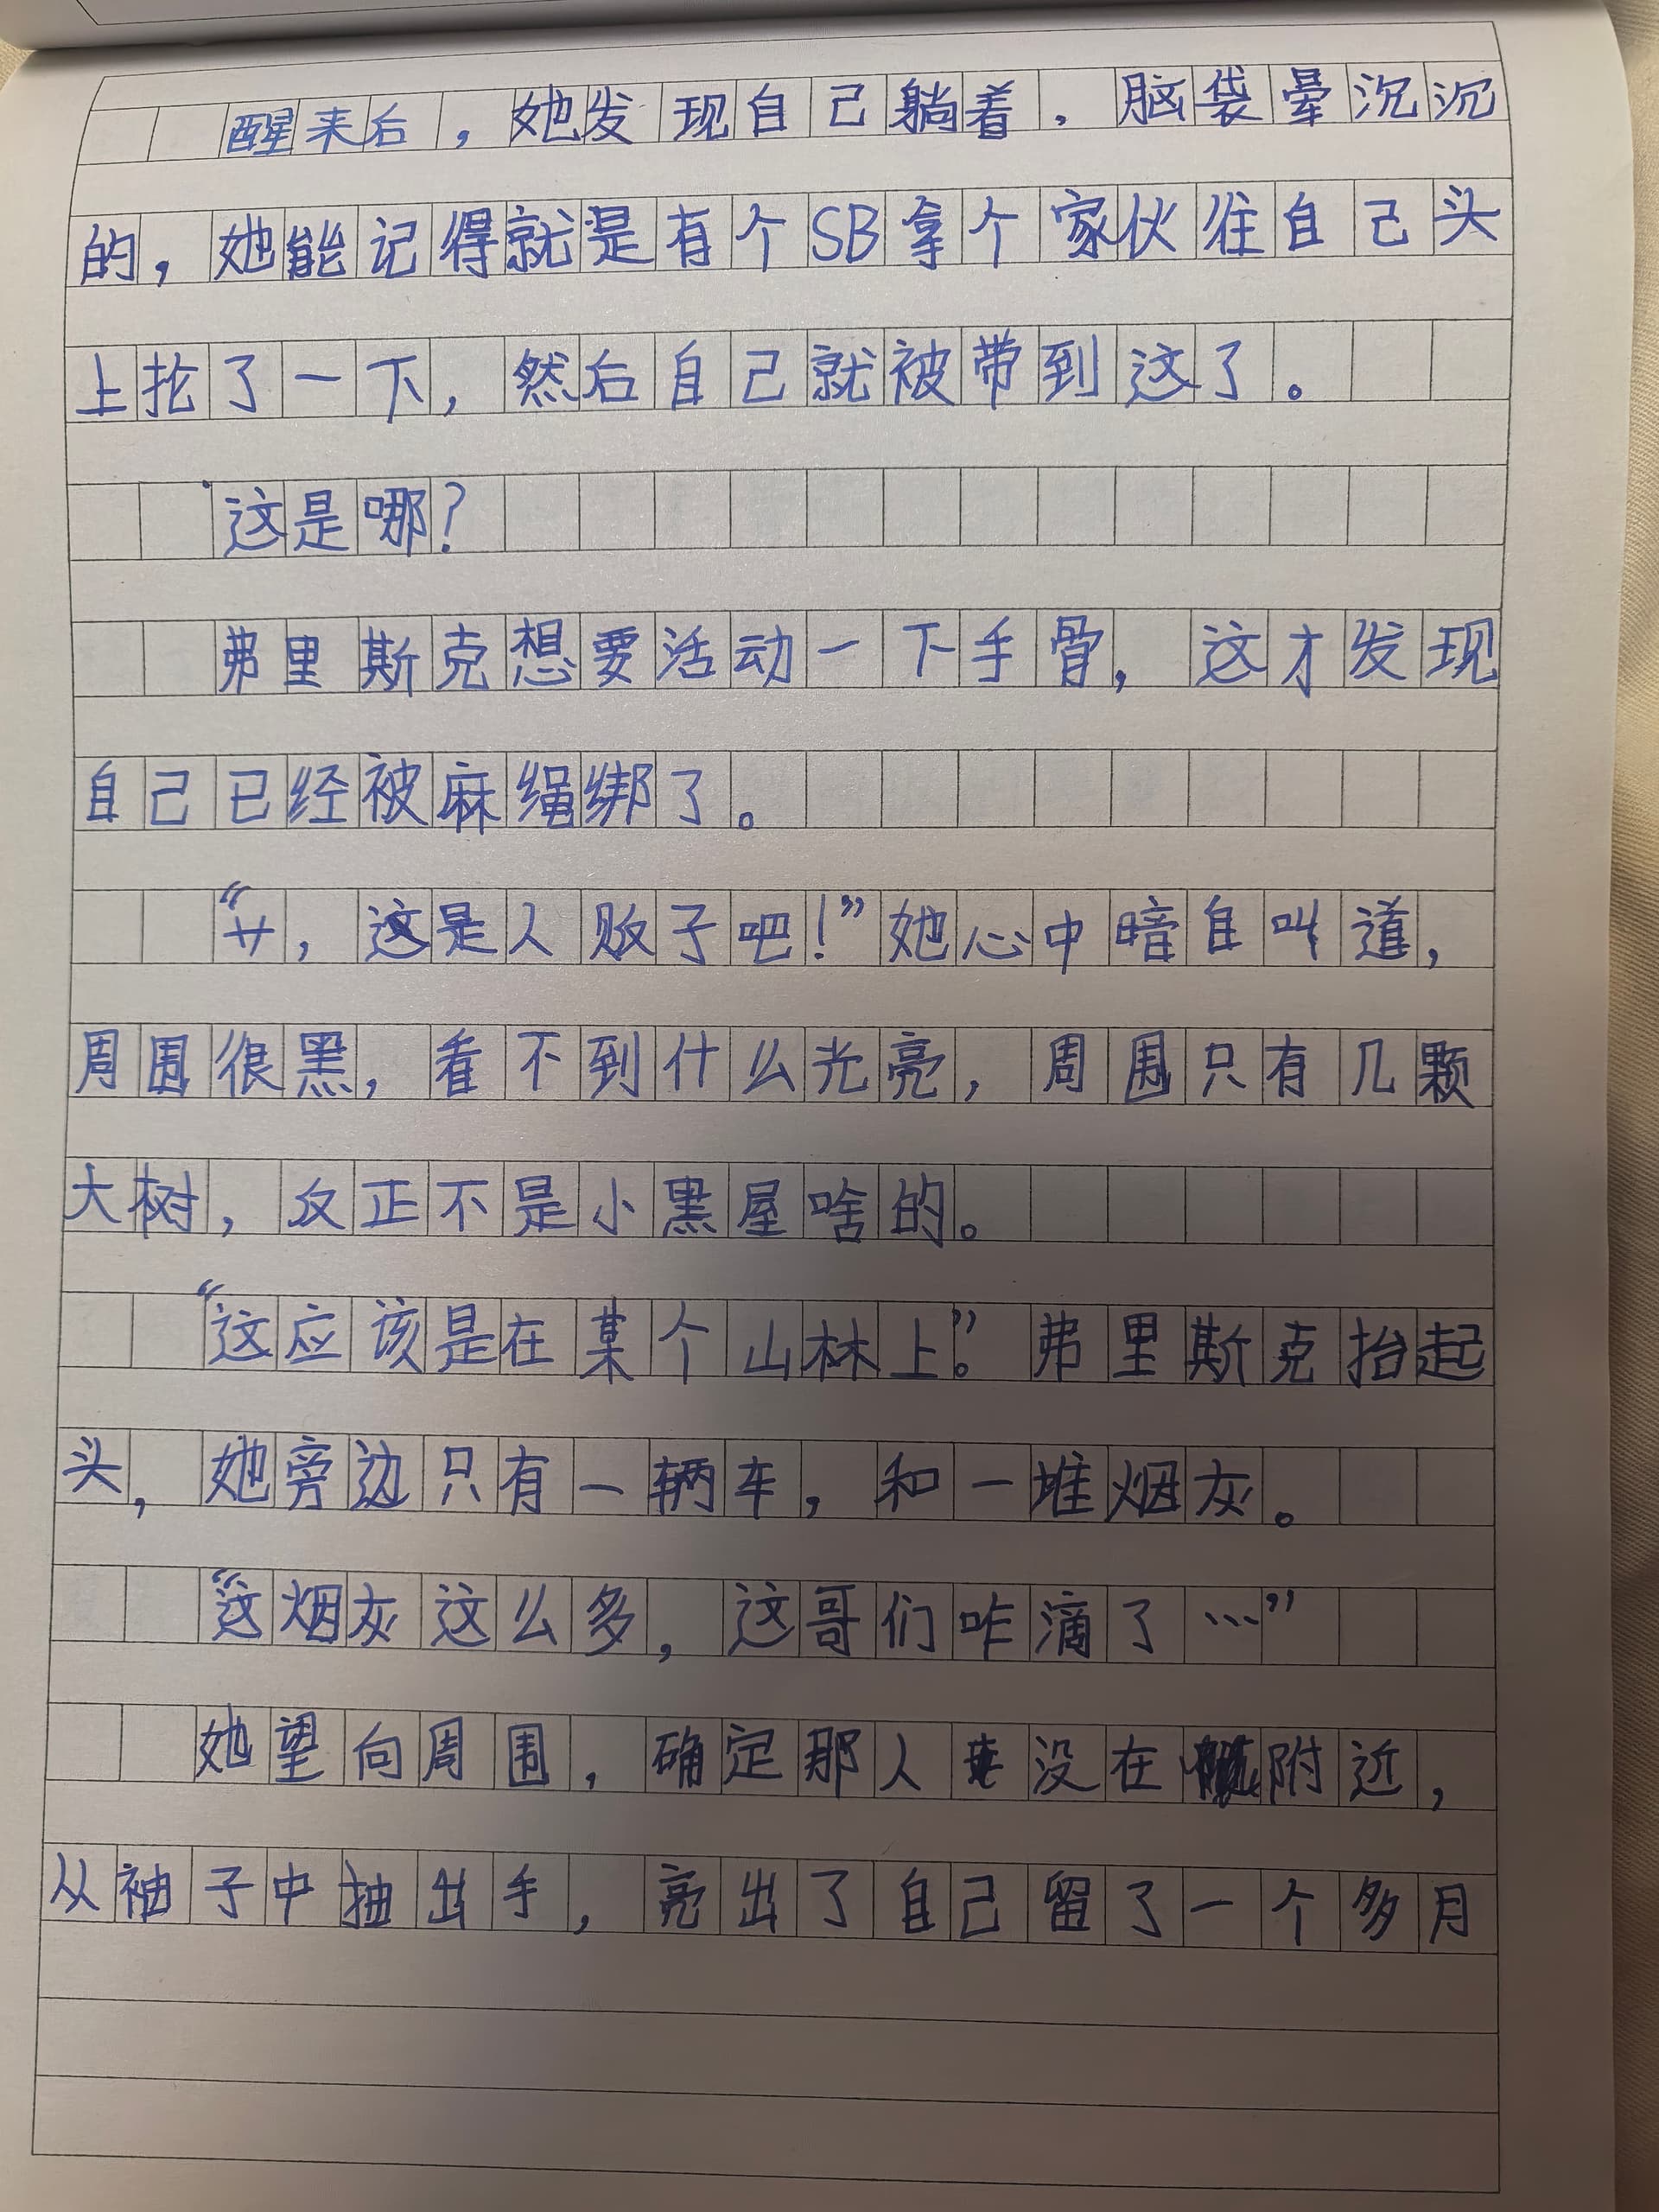 醒来后，她发现自己躺着，脑袋晕沉沉
的，她能记得就是有个SB拿个家伙往自己头
上抡了一下，然后自己就被带到这了。
这是哪？
弗里斯克想要活动一下手骨，这才发现
自己已经被麻绳绑了。
“艹，这是人贩子吧！”她心中暗自叫道，
周围很黑，看不到什么光亮，周围只有几颗
大树，反正不是小黑屋啥的。
“这应该是在某个山林上。”弗里斯克抬起
头，她旁边只有一辆车，和一堆烟灰。
“这烟灰这么多，这哥们咋滴了…”
她望向周围，确定那人没在附近，
从袖子中抽出手，亮出了自己留了一个多月